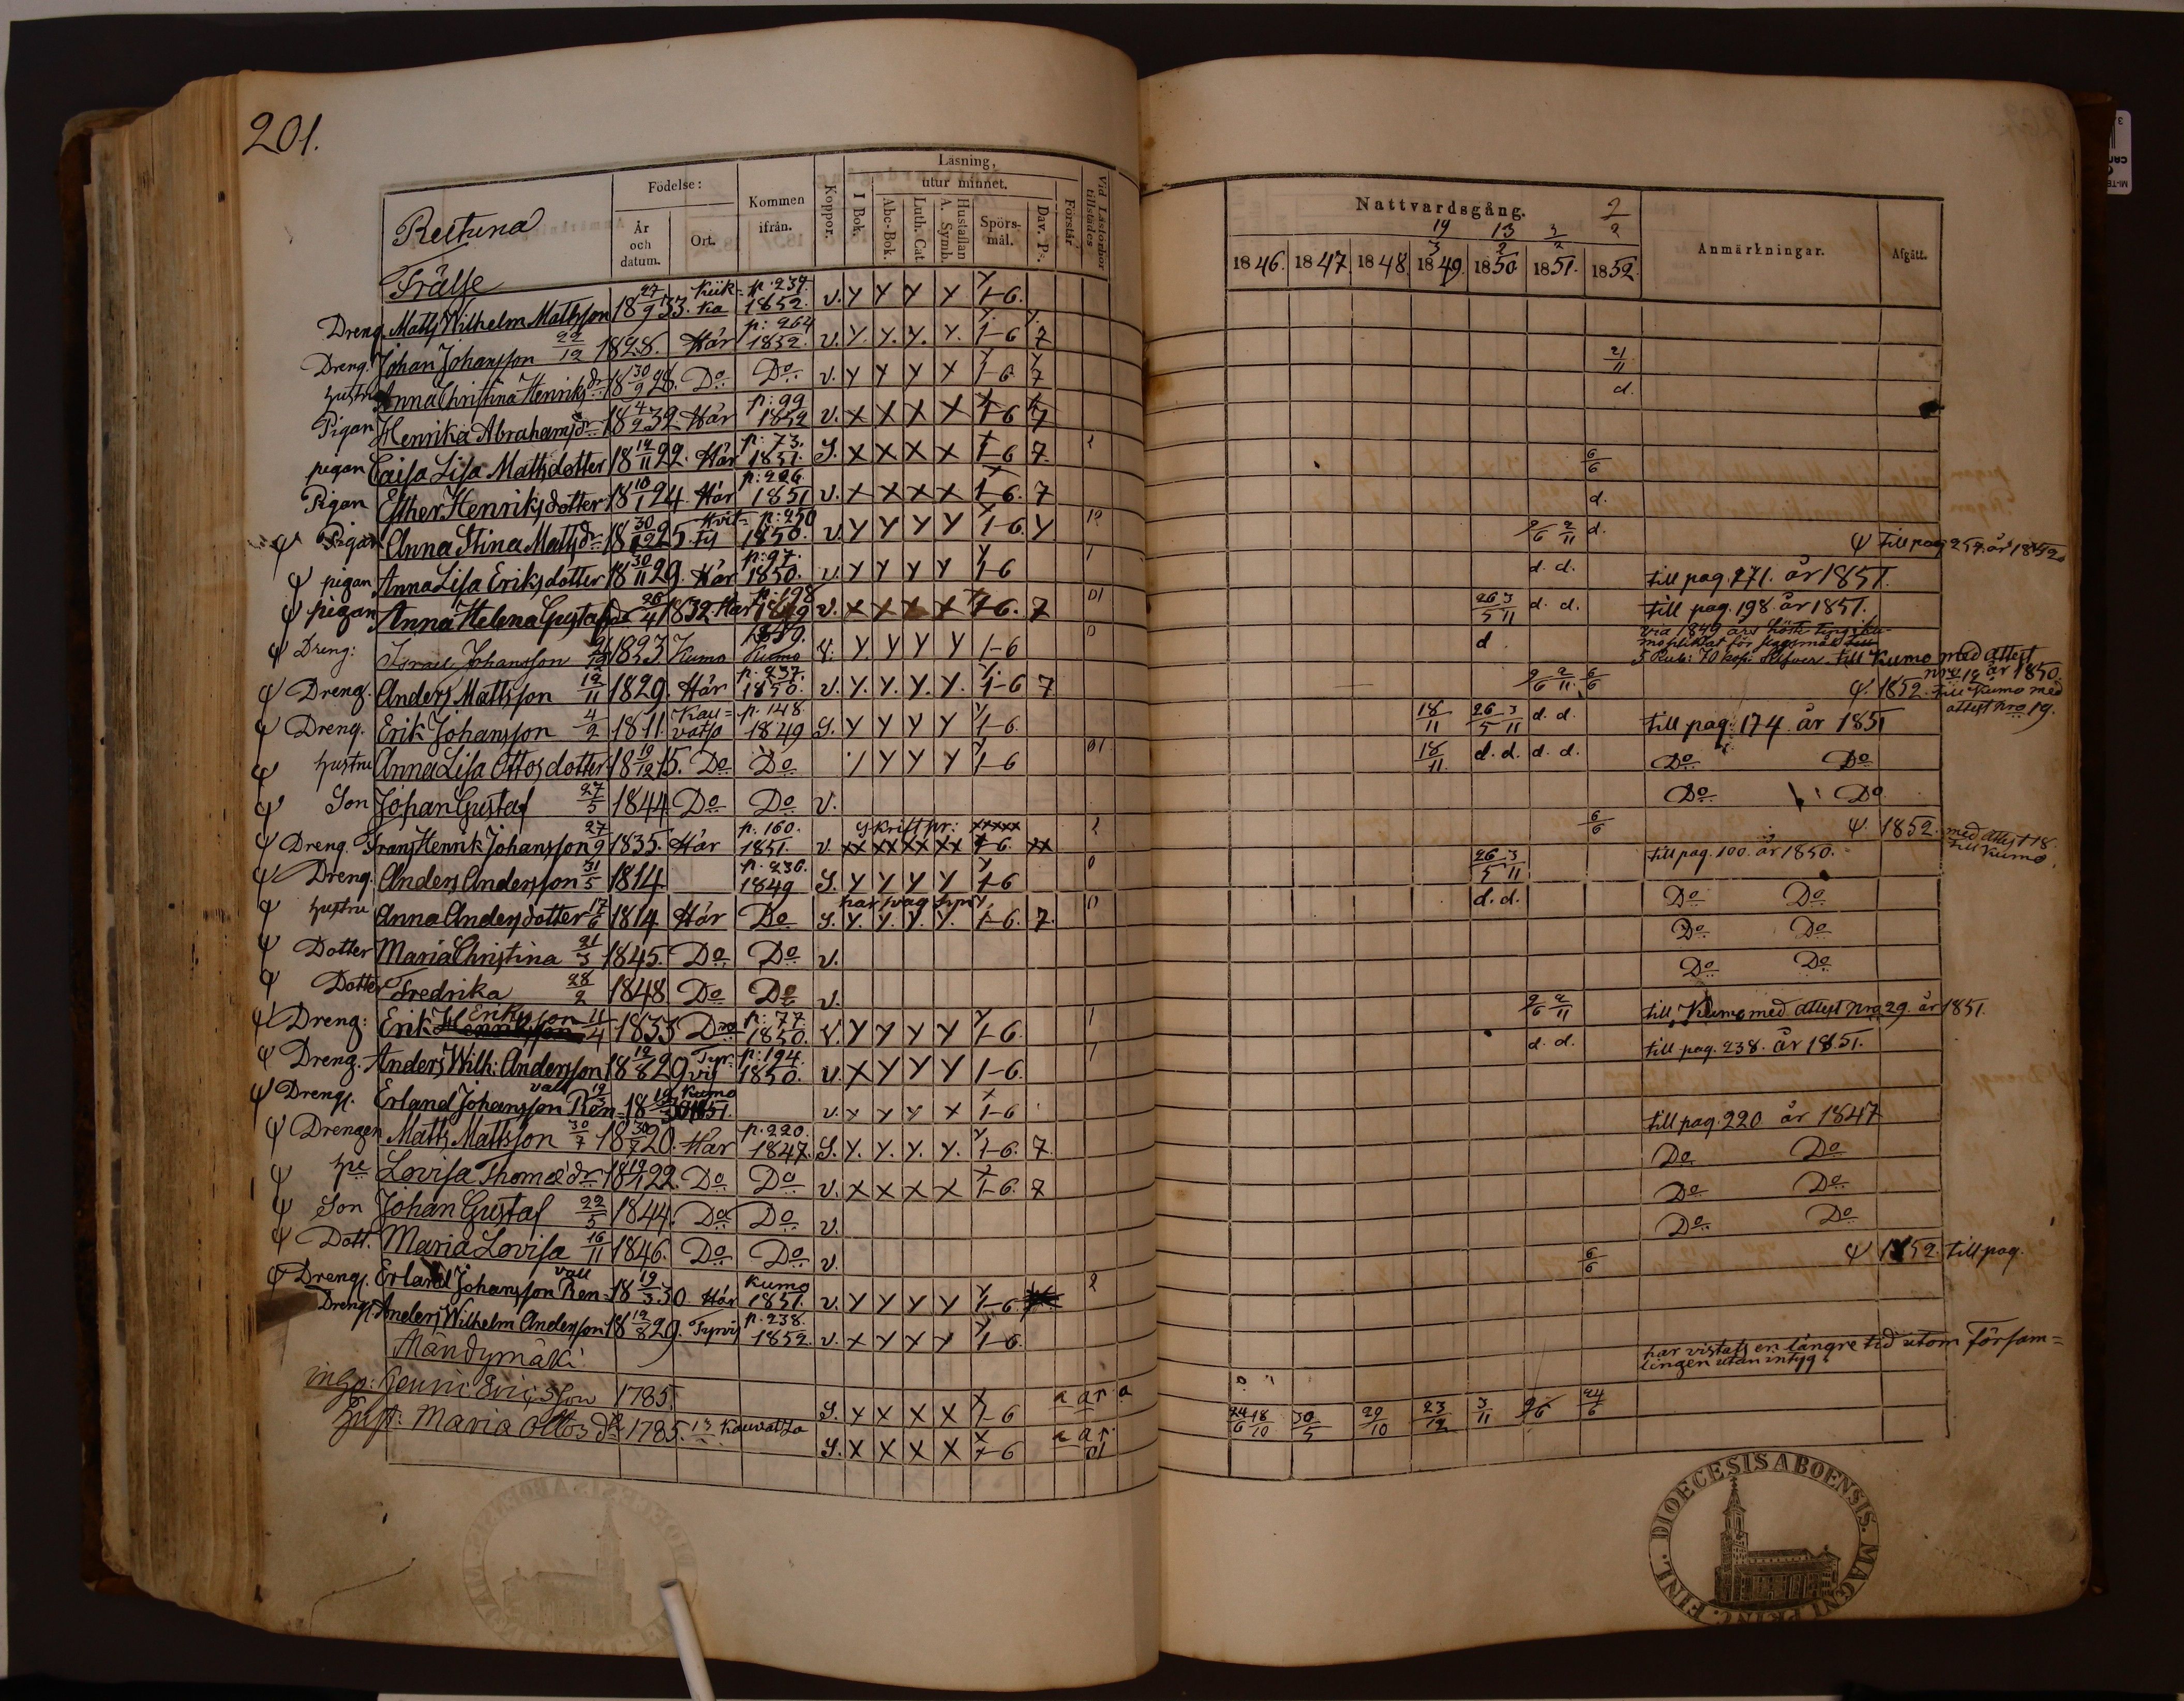 201.
Födelse:
Kommen ifrån.
Koppor.
Läsning,
utur minnet.
I Bok.
Abc-Bok.
Luth. Cat.
Hustaflan
A. Symb.
Spörs-mål.
Dav. Ps.
Förstår
Vid Läsförhör tillstädes
År och datum.
Ort.
Nattvardsgång.
1846. 1847. 1848. 1849. 1850. 1851. 1852.
19/3 13/2 3/2 2/2
Anmärkningar.
Afgått.
Frälse
Dreng. Matts Wilhelm Mattsson 18 27/9 33. Kiik-ka p. 237. 1852. v. Y Y Y X 1-6.
Dreng. Johan Johansson 22/12 1828. Här p: 264 1852. v. Y. Y. Y. Y. 1-6 7 21/11
hustru Anna Christina Henriks dr 18 30/9 28. Do Do v. Y Y Y X 1-6 7 d.
Pigan Henrika Abrahams dr 18 4/2 32. Här p: 99 1852 v. X X X X 1-6 7
pigan Caisa Lisa Mattsdotter 18 14/11 22. Här p: 73. 1851. S. X X X X 1-6 7. 2 6/6
Pigan Esther Henriksdotter 18 10/1 24. Här p: 226 1851 v. X X X X 1-6. 7 d.
ψ Pigan Anna Stina Matts dr 18 30/12 25. p: 250 1850. v. Y Y Y Y 1-6. Y 12 2/6 2/11 d. ψ till pag 257. år 1852
ψ pigan Anna Lisa Eriksdotter 18 30/11 29. Här p: 97. 1850. v. Y Y Y Y 1-6 1 d. d. till pag. 271. år 1851.
ψ pigan Anna Helena Gustafs dr 26/4 1832 Här p. 198 1849 v. X X X X 1-6. 7 01 26/5 3/11 d. d. till pag. 198. år 1851.
ψ Dreng: Israel Johansson 1823 Kumo Kumo Y. Y Y Y 1-6 0 d. vid 1849 års höste
5 Rub: 70 kop: Silfver. till Kumo med attest nro 12 år 1850.
ψ Dreng. Anders Mattsson 12/11 1829. Här p: 237. 1850. v. Y. Y. Y. Y. 1-6 7. 2/6 2/11 6/6 ψ. 1852. till Kumo med attest nro 19.
ψ Dreng. Erik Johansson 4/2 1811. Kau=vatsa p. 148. 1849 S. Y Y Y Y 1-6. 18/11 26/5 3/11 d. d. till pag. 174. år 1851
ψ hustru Anna Lisa Ottosdotter 18 19/12 15. Do Do Y Y Y Y 1-6 01. 18/11. d. d. d. d. Do Do
ψ Son Johan Gustaf 27/5 1844 Do Do v. Do Do
ψ Dreng. Frans Henrik Johansson 27/9 1835. Här p. 160. 1851. v. skriftpr: 1-6. XX 2 6/6 ψ. 1852. med attest 18. till Kumo.
ψ Dreng. Anders Andersson 31/5 1814 p. 236. 1849 S. Y Y Y Y 1-6 0 26/5 3/11 till pag. 100. år 1850.
ψ hustru Anna Andersdotter 17/6 1814 Här Do har svag syn S. Y. Y. Y. Y. 1-6. 7. 0 d. d. Do Do
ψ Dotter Maria Christina 21/3 1845. Do Do v. Do Do
ψ Dotter Fredrika 28/2 1848 Do Do v. Do Do
ψ Dreng: Erik Henriksson Eriksson 11/4 1833 Do p: 77 1850. v. Y Y Y Y 1-6. 1 2/6 2/11 till Kumo med attest nro 29. år 1851.
ψ Dreng. Anders Wilh: Andersson 18 12/8 29 Tyr-vis p: 194. 1850. v. X Y Y Y 1-6. 1 d. d. till pag. 238. år 1851.
ψ Drengs. Erland Johansson Ren-vall 18 19/3 30 Kumo 1851. v. Y Y Y X 1-6
ψ Drengen Matts Mattsson 30/7 1820. Här p. 220. 1847. S. Y. Y. Y. Y. 1-6. 7. till pag. 220 år 1847
ψ Lovisa Thomæ dr 1822. Do Do v. X X X X 1-6. 7 Do Do
ψ Son Johan Gustaf 22/5 1844. Do Do v. Do Do
ψ Dott. Maria Lovisa 16/11 1846. Do Do v. Do Do
ψ Drengs. Erland Johansson Ren-vall 18 19/3 30 Här Kumo 1851. v. Y Y Y Y 1-6. 2 6/6 ψ 1852. till pag.
Drengs. Anders Wilhelm Andersson 18 12/8 29. Tyrvis p. 238. 1852. v. X Y X Y 1-6.
Mändymäki
har vistats en längre tid utom Försam=lingen utan intyg.
1785. S. Y X X X 1-6
Maria Ottos dr 1785. Kauvatsa S. X X X X 1-6 24/6 18/10 30/5 29/10 23/12 3/11 2/6 24/6
FINL. DIOECESIS ABOENSIS. MAGNI PRINC.